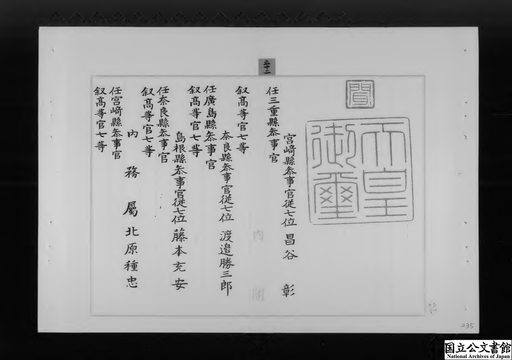 聞
天皇御璽
宮崎縣參事官從七位 昌谷 彰
任三重縣參事官
敘高等官七等
奈良縣參事官從七位 渡邉勝三郎
任廣島縣參事官
敘高等官七等
島根縣參事官從七位 藤本充安
任奈良縣參事官
敘高等官七等
內務屬 北原種忠
任宮崎縣參事官
敘高等官七等
国立公文書館
National Archives of Japan